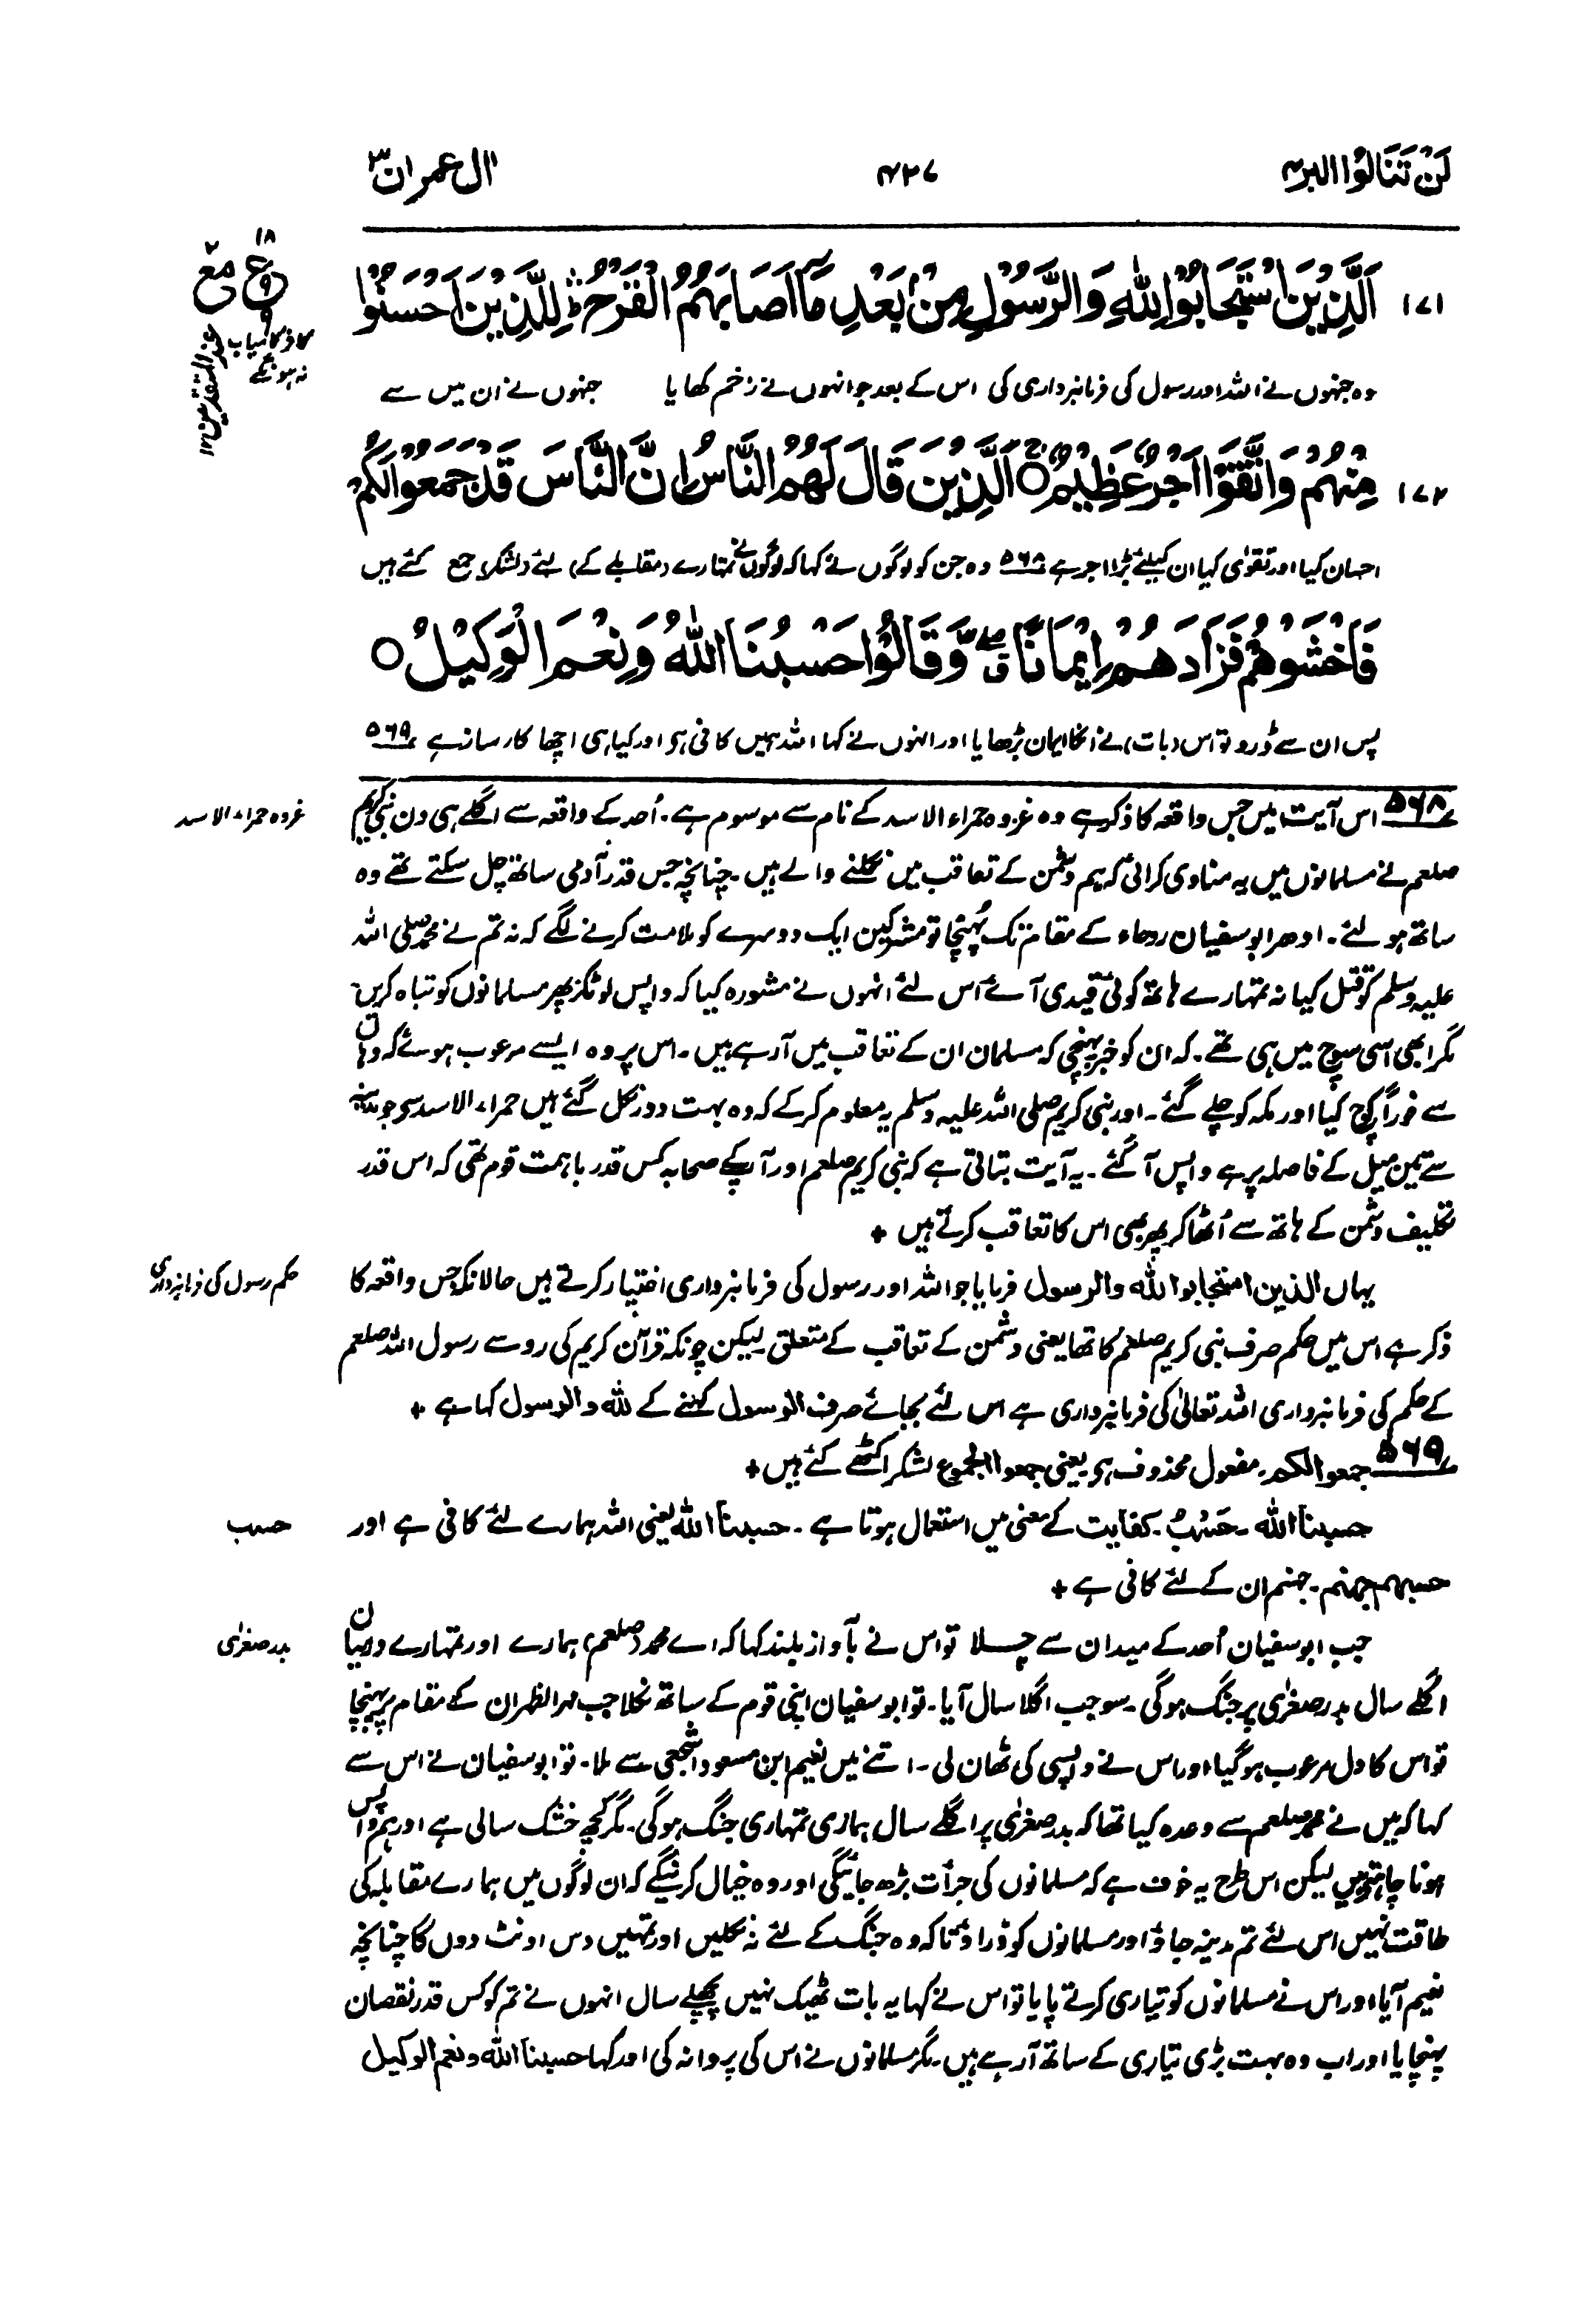 لَنْ تَنَالُوا البر۴
۴۲۷
اٰل عمران ۳
۱۷۱ اَلَّذِيْنَ اسْتَجَابُوْا لِلّٰهِ وَالرَّسُوْلِ مِنْۢ بَعْدِ مَآ اَصَابَهُمُ الْقَرْحُ ۛ لِلَّذِيْنَ اَحْسَنُوْا
وہ جنہوں نے اللہ اور رسول کی فرمانبرداری کی اس کے بعد جو انہوں نے زخم کھایا جنہوں نے ان میں سے
۱۷۲ مِنْهُمْ وَاتَّقَوْا اَجْرٌ عَظِيْمٌ ۚ○ اَلَّذِيْنَ قَالَ لَهُمُ النَّاسُ اِنَّ النَّاسَ قَدْ جَمَعُوْا لَكُمْ
احسان کیا اور تقویٰ کیا ان کیلئے بڑا اجر ہے ۵۶۸ وہ جن کو لوگوں نے کہا کہ لوگوں نے تمہارے (مقابلے کے) لئے (لشکر) جمع کئے ہیں
فَاخْشَوْهُمْ فَزَادَهُمْ اِيْمَانًا ۖق وَّقَالُوْا حَسْبُنَا اللّٰهُ وَنِعْمَ الْوَكِيْلُ ○
پس ان سے ڈرو تو اس (بات) نے انکا ایمان بڑھایا اور انہوں نے کہا اللہ ہمیں کافی ہی اور کیا ہی اچھا کارساز ہے ۵۶۹
۱۸
ع
۹
۲
مع
کافر کامیاب
نہ ہونگے
عند المتقدمین ۱۲
۵۶۸ اس آیت میں جس واقعہ کا ذکر ہے وہ غزوہ حمراء الاسد کے نام سے موسوم ہے۔ اُحد کے واقعہ سے اگلے ہی دن نبی کریم
غزوہ حمراء الاسد
صلعم نے مسلمانوں میں یہ منادی کرائی کہ ہم دشمن کے تعاقب میں نکلنے والے ہیں۔ چنانچہ جس قدر آدمی ساتھ چل سکتے تھے وہ
ساتھ ہو لئے۔ ادھر ابوسفیان روحاء کے مقام تک پہُنچا تو مشرکین ایک دوسرے کو ملامت کرنے لگے کہ نہ تم نے محمد صلی اللہ
علیہ وسلم کو قتل کیا نہ تمہارے ہاتھ کوئی قیدی آئے اس لئے انہوں نے مشورہ کیا کہ واپس لوٹکر پھر مسلمانوں کو تباہ کریں۔
مگر ابھی اسی سوچ میں ہی تھے۔ کہ ان کو خبر پہنچی کہ مسلمان ان کے تعاقب میں آرہے ہیں۔ اس پر وہ ایسے مرعوب ہوئے کہ وہاں
سے فوراً کوچ کیا اور مکہ کو چلے گئے۔ اور نبی کریم صلی اللہ علیہ وسلم یہ معلوم کرکے کہ وہ بہت دور نکل گئے ہیں حمراء الاسد سی جو مدینہ
سے تین میل کے فاصلہ پر ہے واپس آگئے۔ یہ آیت بتاتی ہے کہ نبی کریم صلعم اور آپکے صحابہ کس قدر باہمت قوم تھی کہ اس قدر
تکلیف دشمن کے ہاتھ سے اُٹھا کر پھر بھی اس کا تعاقب کرتے ہیں +
یہاں الذین استجابوا للّٰہ والرسول فرمایا جو اللہ اور رسول کی فرمانبرداری اختیار کرتے ہیں حالانکہ جس واقعہ کا
حکم رسول کی فرمانبرداری
ذکر ہے اس میں حکم صرف نبی کریم صلعم کا تھا یعنی دشمن کے تعاقب کے متعلق لیکن چونکہ قرآن کریم کی رو سے رسول اللہ صلعم
کے حکم کی فرمانبرداری اللہ تعالیٰ کی فرمانبرداری ہے اس لئے بجائے صرف الرسول کہنے کے للّٰہ والرسول کہا ہے +
۵۶۹ جمعوا لکم۔ مفعول محذوف ہی یعنی جمعوا الجموع لشکر اکٹھے کئے ہیں +
حسبنا اللّٰہ۔ حَسْبُ۔ کفایت کے معنی میں استعمال ہوتا ہے۔ حسبنا اللّٰہ یعنی اللہ ہمارے لئے کافی ہے اور
حسب
حسبهم جهنم۔ جہنم ان کے لئے کافی ہے +
جب ابوسفیان اُحد کے میدان سے چلا تو اس نے بآواز بلند کہا کہ اے محمد (صلعم) ہمارے اور تمہارے درمیان
بدر صغریٰ
اگلے سال بدر صغریٰ پر جنگ ہوگی۔ سو جب اگلا سال آیا۔ تو ابوسفیان اپنی قوم کے ساتھ نکلا جب مر الظہران کے مقام پر پہنچا
تو اس کا دل مرعوب ہوگیا اور اس نے واپسی کی ٹھان لی۔ اتنے میں نعیم ابن مسعود اشجعی سے ملا۔ تو ابوسفیان نے اس سے
کہا کہ میں نے محمد صلعم سے وعدہ کیا تھا کہ بدر صغریٰ پر اگلے سال ہماری تمہاری جنگ ہوگی۔ مگر کچھ خشک سالی ہے اور ہم واپس
ہونا چاہتے ہیں لیکن اس طرح یہ خوف ہے کہ مسلمانوں کی جرأت بڑھ جائیگی اور وہ خیال کرینگے کہ ان لوگوں میں ہمارے مقابلہ کی
طاقت نہیں اس لئے تم مدینہ جاؤ اور مسلمانوں کو ڈراؤ تاکہ وہ جنگ کے لئے نہ نکلیں اور تمہیں دس اونٹ دوں گا چنانچہ
نعیم آیا اور اس نے مسلمانوں کو تیاری کرتے پایا تو اس نے کہا یہ بات ٹھیک نہیں پچھلے سال انہوں نے تم کو کس قدر نقصان
پہنچایا اور اب وہ بہت بڑی تیاری کے ساتھ آرہے ہیں۔ مگر مسلمانوں نے اس کی پروا نہ کی اور کہا حسبنا اللّٰہ ونعم الوکیل